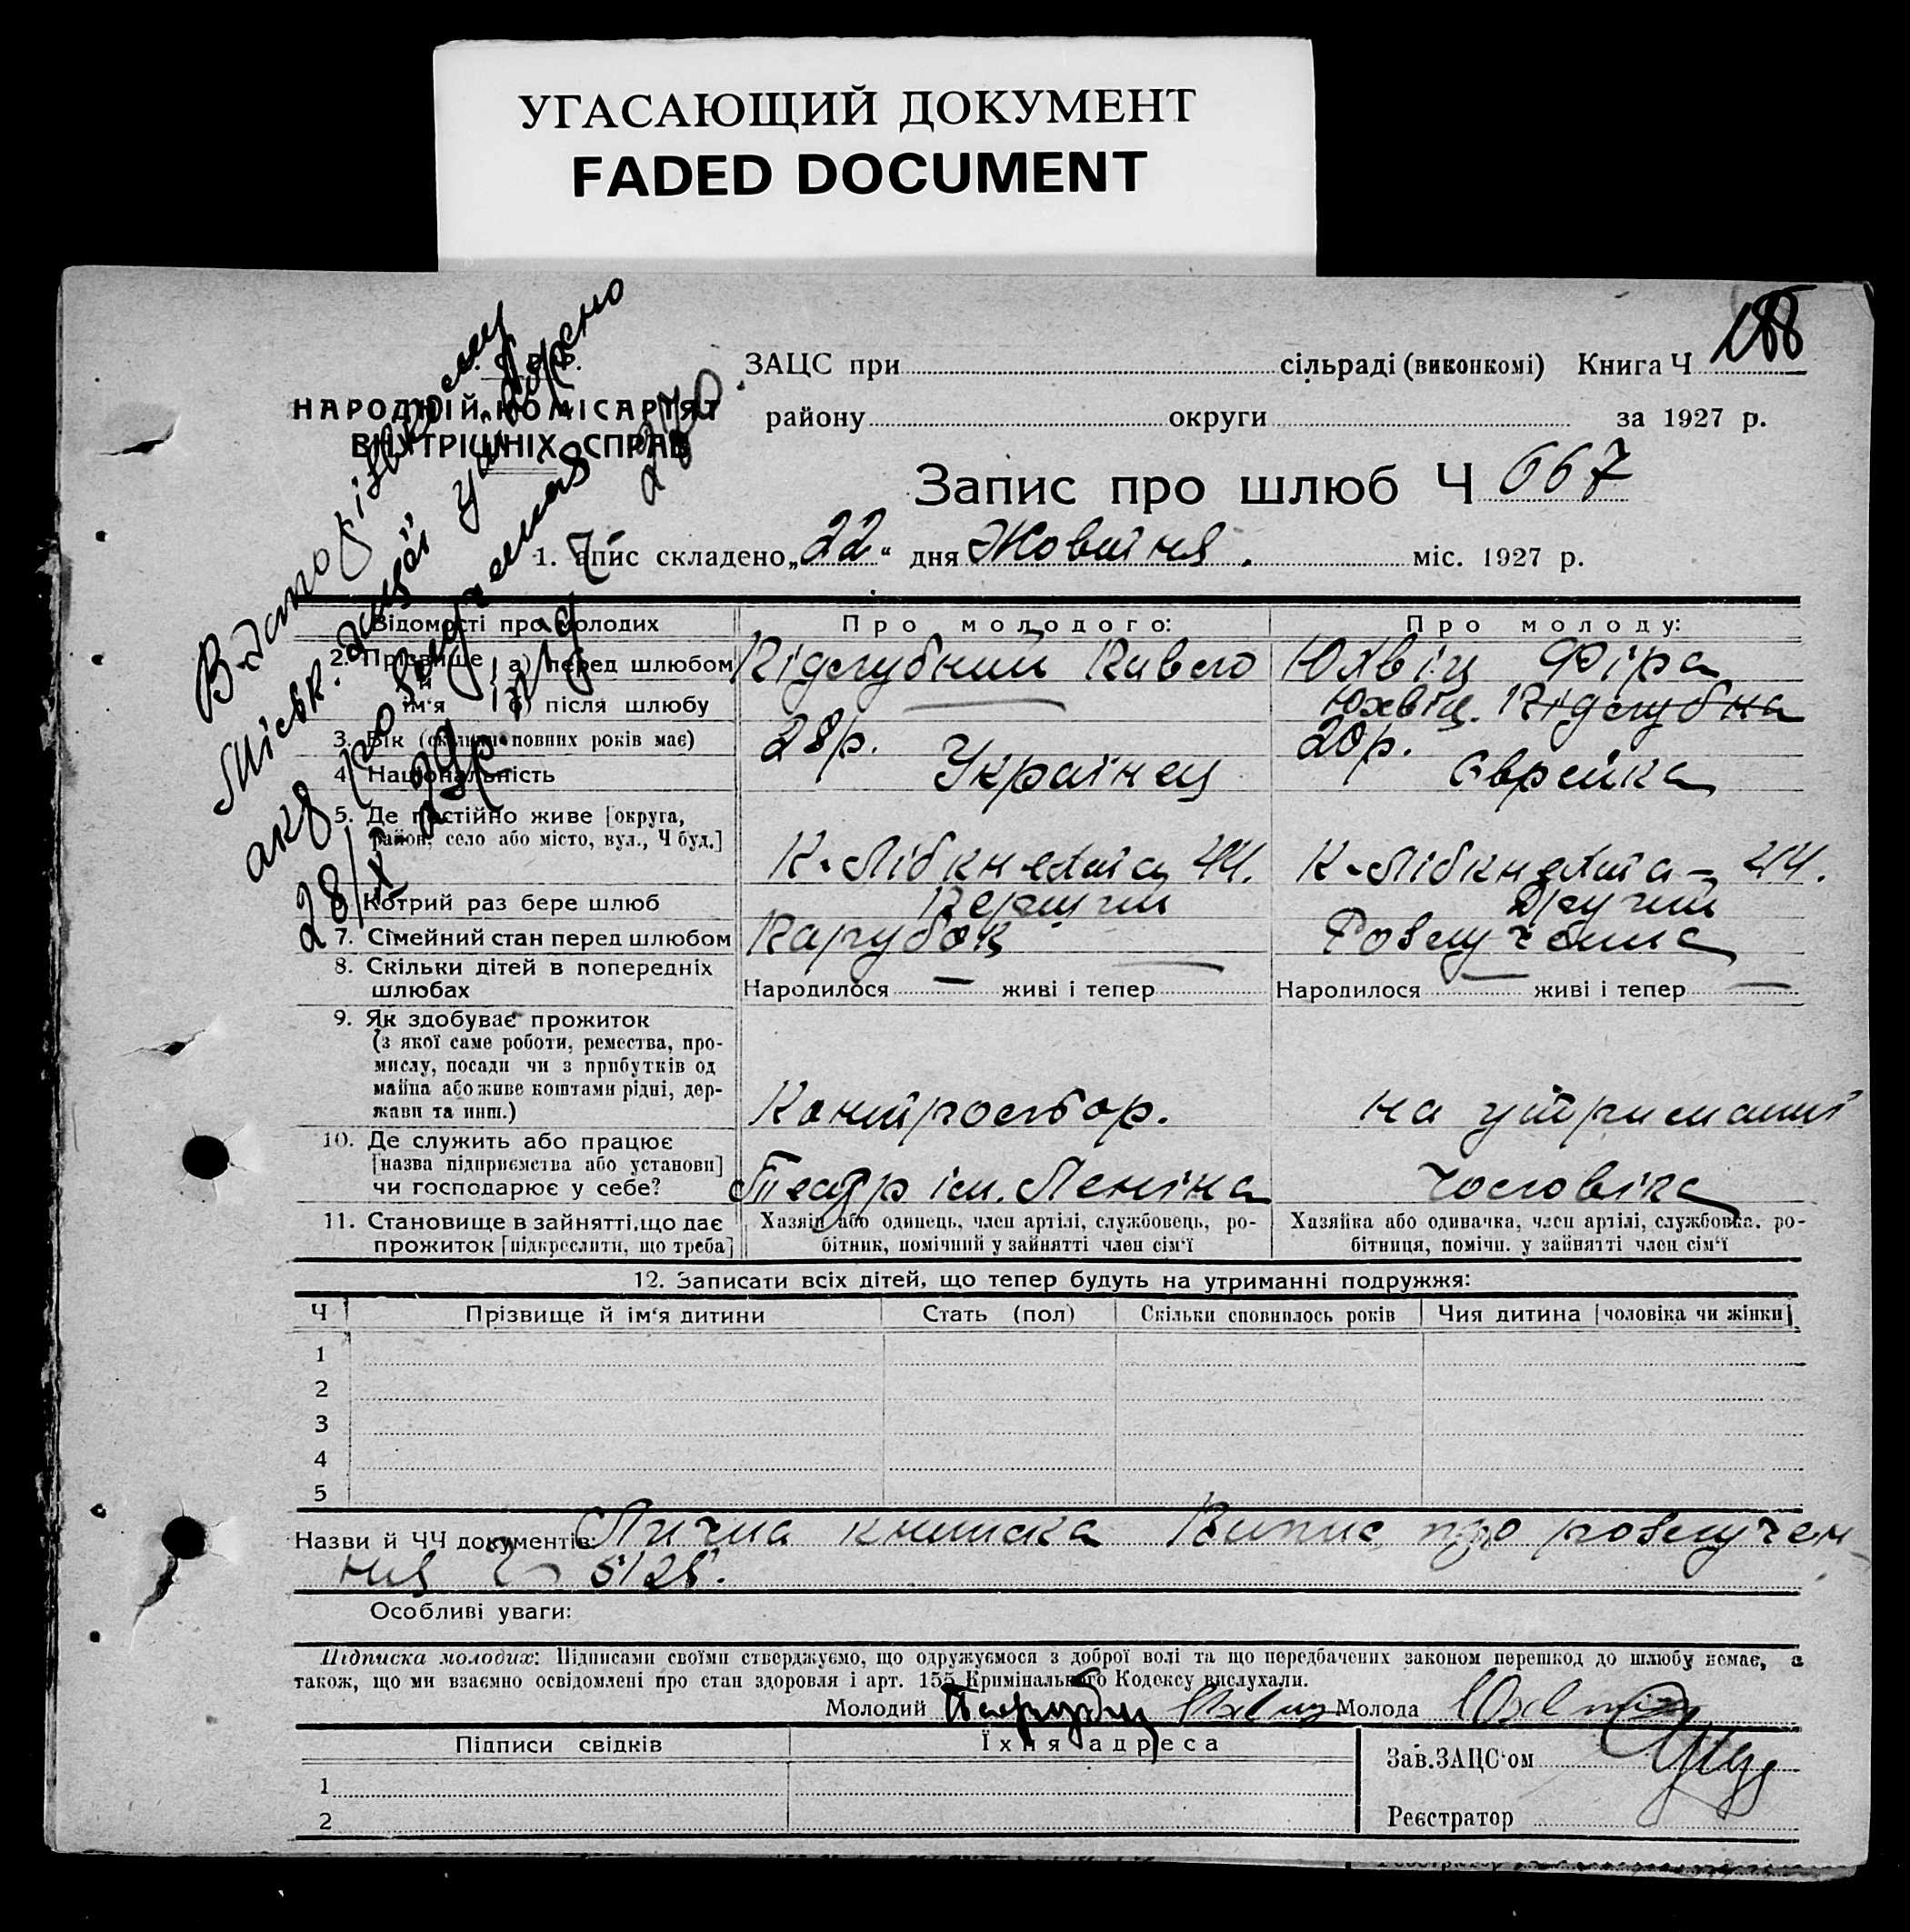 УГАСАЮЩИЙ ДОКУМЕНТ
FADED DOCUMENT
188
НАРОДНІЙ КОМІСАРІЯТ
ВНУТРІШНІХ СПРАВ
ЗАЦС при сільраді (виконкомі) Книга Ч
району округи за 1927 р.
Запис про шлюб Ч 667
1. апис складено „22“ дня Жовтня. міс. 1927 р.
В Запоріжському
Міськ. ЗАЦСі
акт про розлучення
28/X 29р.
Відомості про молодих Про молодого: Про молоду:
2. Прізвище й ім‘я
а) перед шлюбом Підлубний Павло Юхвіц Фіра
б) після шлюбу — Юхвіц. Підлубна
3. Вік (скільки повних років має) 28р. 20р.
4. Національність Українец Єврейка
5. Де постійно живе [округа,
район, село або місто, вул., Ч буд.] К-Лібкнехта 44. К-Лібкнехта - 44.
6. Котрий раз бере шлюб Перший Другий
7. Сімейний стан перед шлюбом Парубок Розлучена
8. Скільки дітей в попередніх
шлюбах Народилося — живі і тепер — Народилося — живі і тепер —
9. Як здобуває прожиток
(з якої саме роботи, ремества, про-
мислу, посади чи з прибутків од
майна або живе коштами рідні, дер-
жави та инш.) Контрольор. на утриманні
10. Де служить або працює
[назва підприємства або установи]
чи господарює у себе? Театр ім. Леніна чоловіка
11. Становище в зайнятті, що дає
прожиток [підкреслити, що треба]
Хазяін або одинець, член артілі, службовець, ро-
бітник, помічний у зайнятті член сім‘ї
Хазяйка або одиначка, член артілі, службовка, ро-
бітниця, помічн. у зайнятті член сім‘ї
12. Записати всіх дітей, що тепер будуть на утриманні подружжя:
Ч Прізвище й ім‘я дитини Стать (пол) Скільки сповнилось років Чия дитина [чоловіка чи жінки]
1
2
3
4
5
Назви й ЧЧ документів: Лична книжка Випис про розлучен
ня 5/28.
Особливі уваги:
Підписка молодих: Підписами своїми стверджуємо, що одружуємося з доброї волі та що передбачених законом перешкод до шлюбу немає, а
також, що ми взаємно освідомлені про стан здоровля і арт. 155 Кримінального Кодексу вислухали.
Молодий Молода
Підписи свідків Їхня адреса
Зав. ЗАЦС‘ом
1
Реєстратор
2